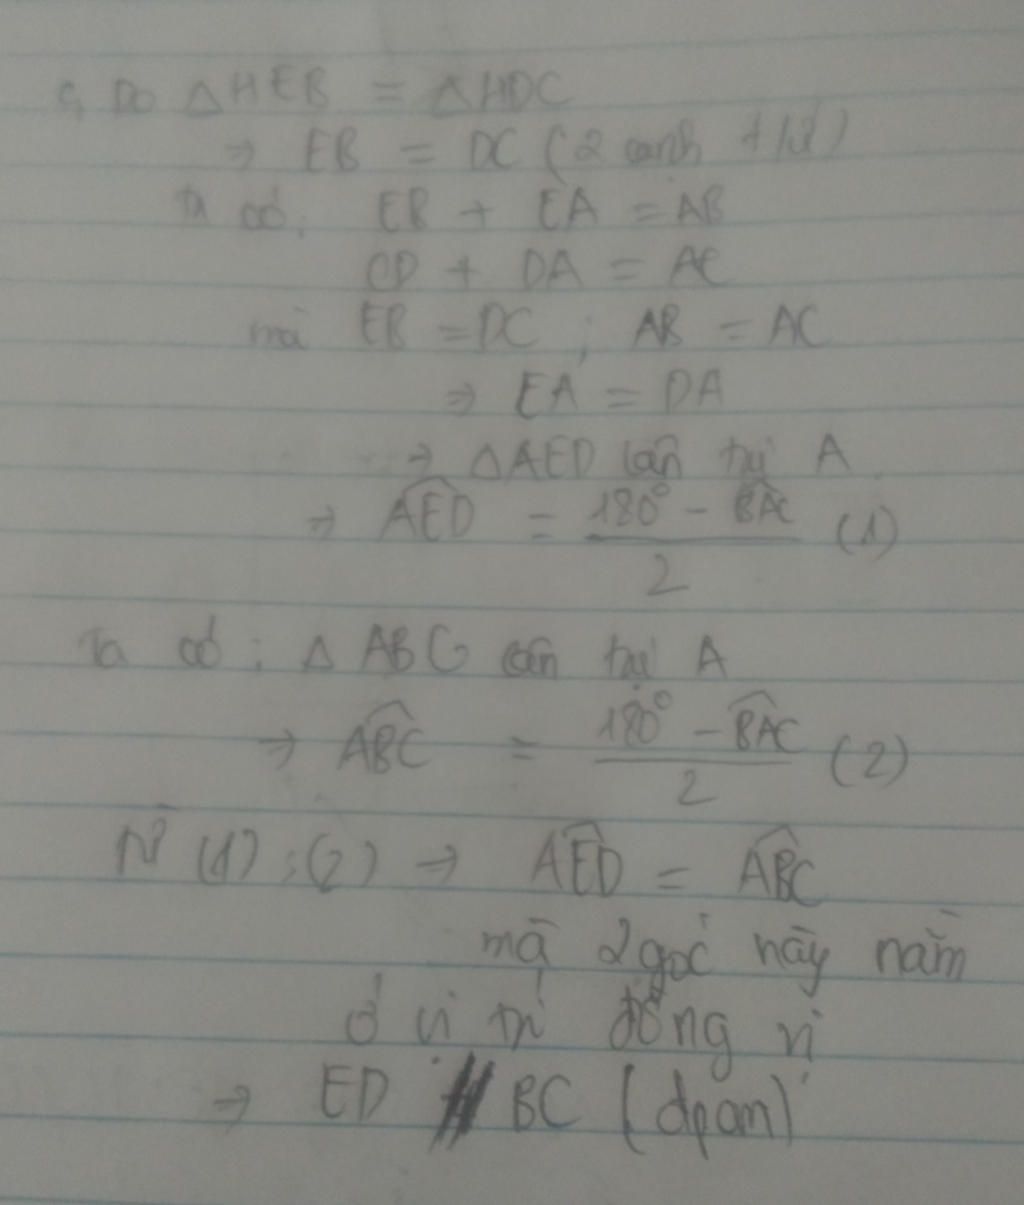 c, Do △HEB = △HDC
⇒ EB = DC (2 cạnh t/ứ)
Ta có: EB + EA = AB
CD + DA = AC
mà EB = DC ; AB = AC
⇒ EA = DA
⇒ △AED cân tại A
⇒ \widehat{AED} = \frac{180° - \widehat{BAC}}{2} (1)
Ta có : △ ABC cân tại A
⇒ \widehat{ABC} = \frac{180° - \widehat{BAC}}{2} (2)
Từ (1) ; (2) ⇒ \widehat{AED} = \widehat{ABC}
mà 2 góc này nằm
ở vị trí đồng vị
⇒ ED // BC (đpcm)